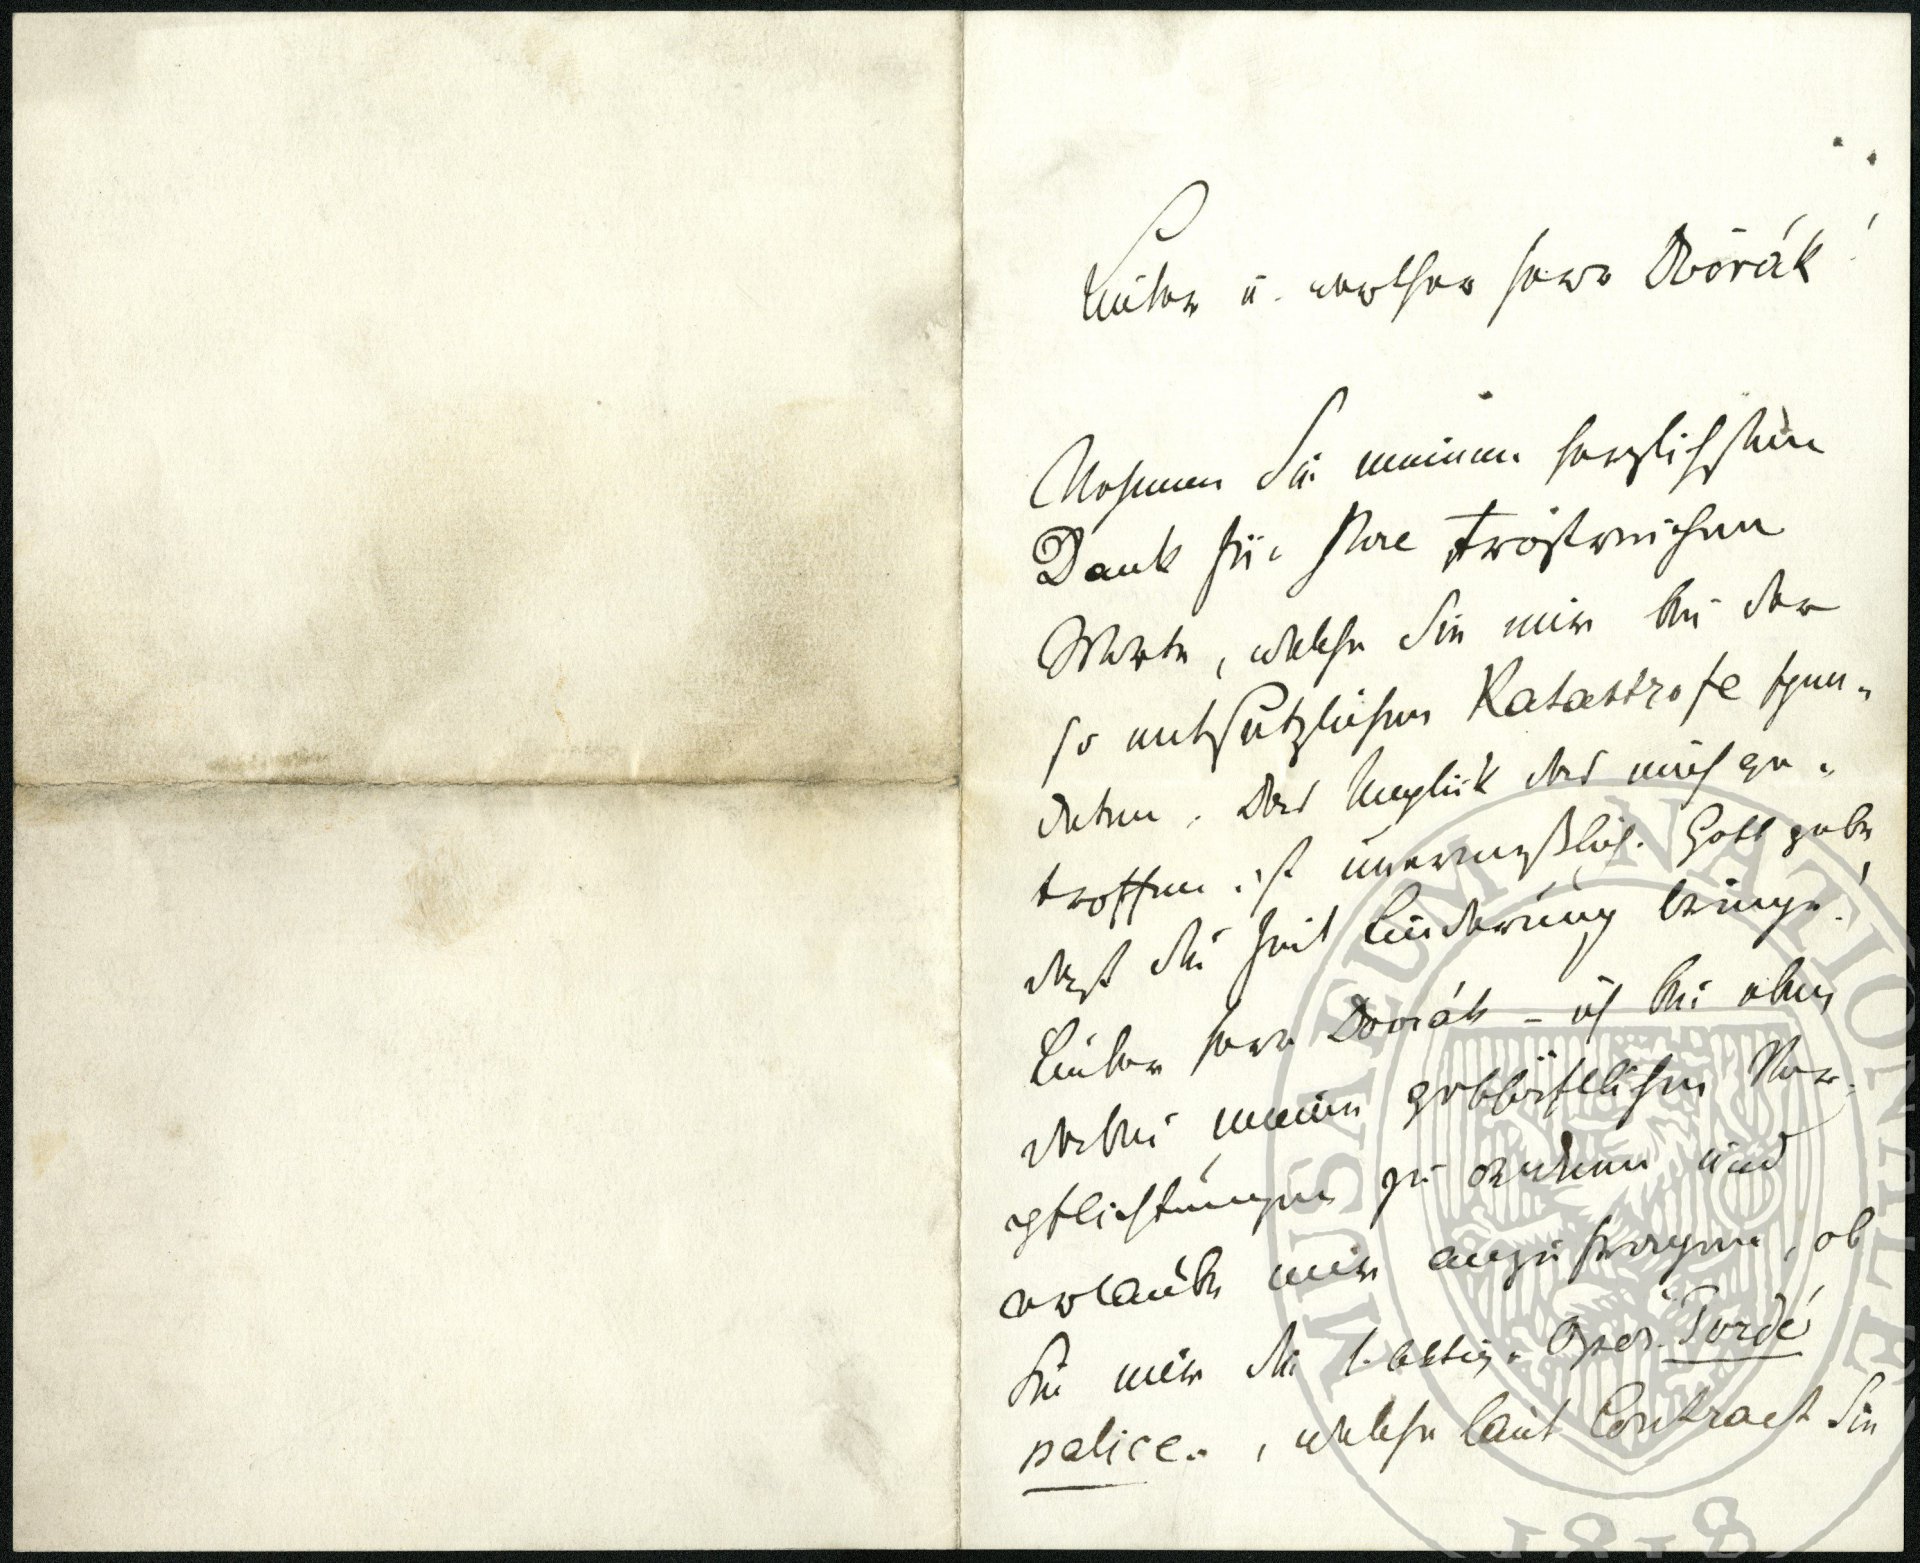 Lieber u. werther Herr Dvořák!
Nehmen Sie meinen herzlichsten
Dank für Ihre trostreichen
Worte, welche Sie mir bei der
so entsetzlichen Katastrofe spen-
deten. Das Unglück das mich ge-
troffen ist unermeßlich. Gott gebe
daß die Zeit Linderung bringe!
Lieber Herr Dvořák – ich bin eben
dabei meine geschäftlichen Ver-
pflichtungen zu ordnen und
erlaube mir anzufragen, ob
Sie mir die 1 aktig. Oper. Tvrdé
palice. , welche laut Contract Sie
MUSAEUM NATIONALE
1818